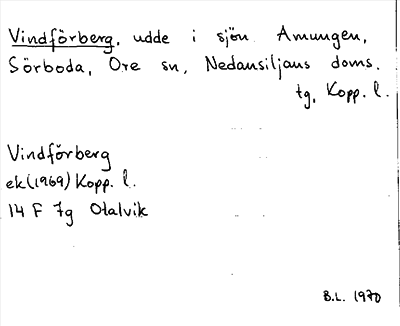 Vindförberg, udde i sjön Amungen,
Sörboda, Ore sn, Nedansiljans doms.
tg, Kopp. l.
Vindförberg
ek (1969) Kopp. l.
14 F 7g Otalvik
B.L. 1970